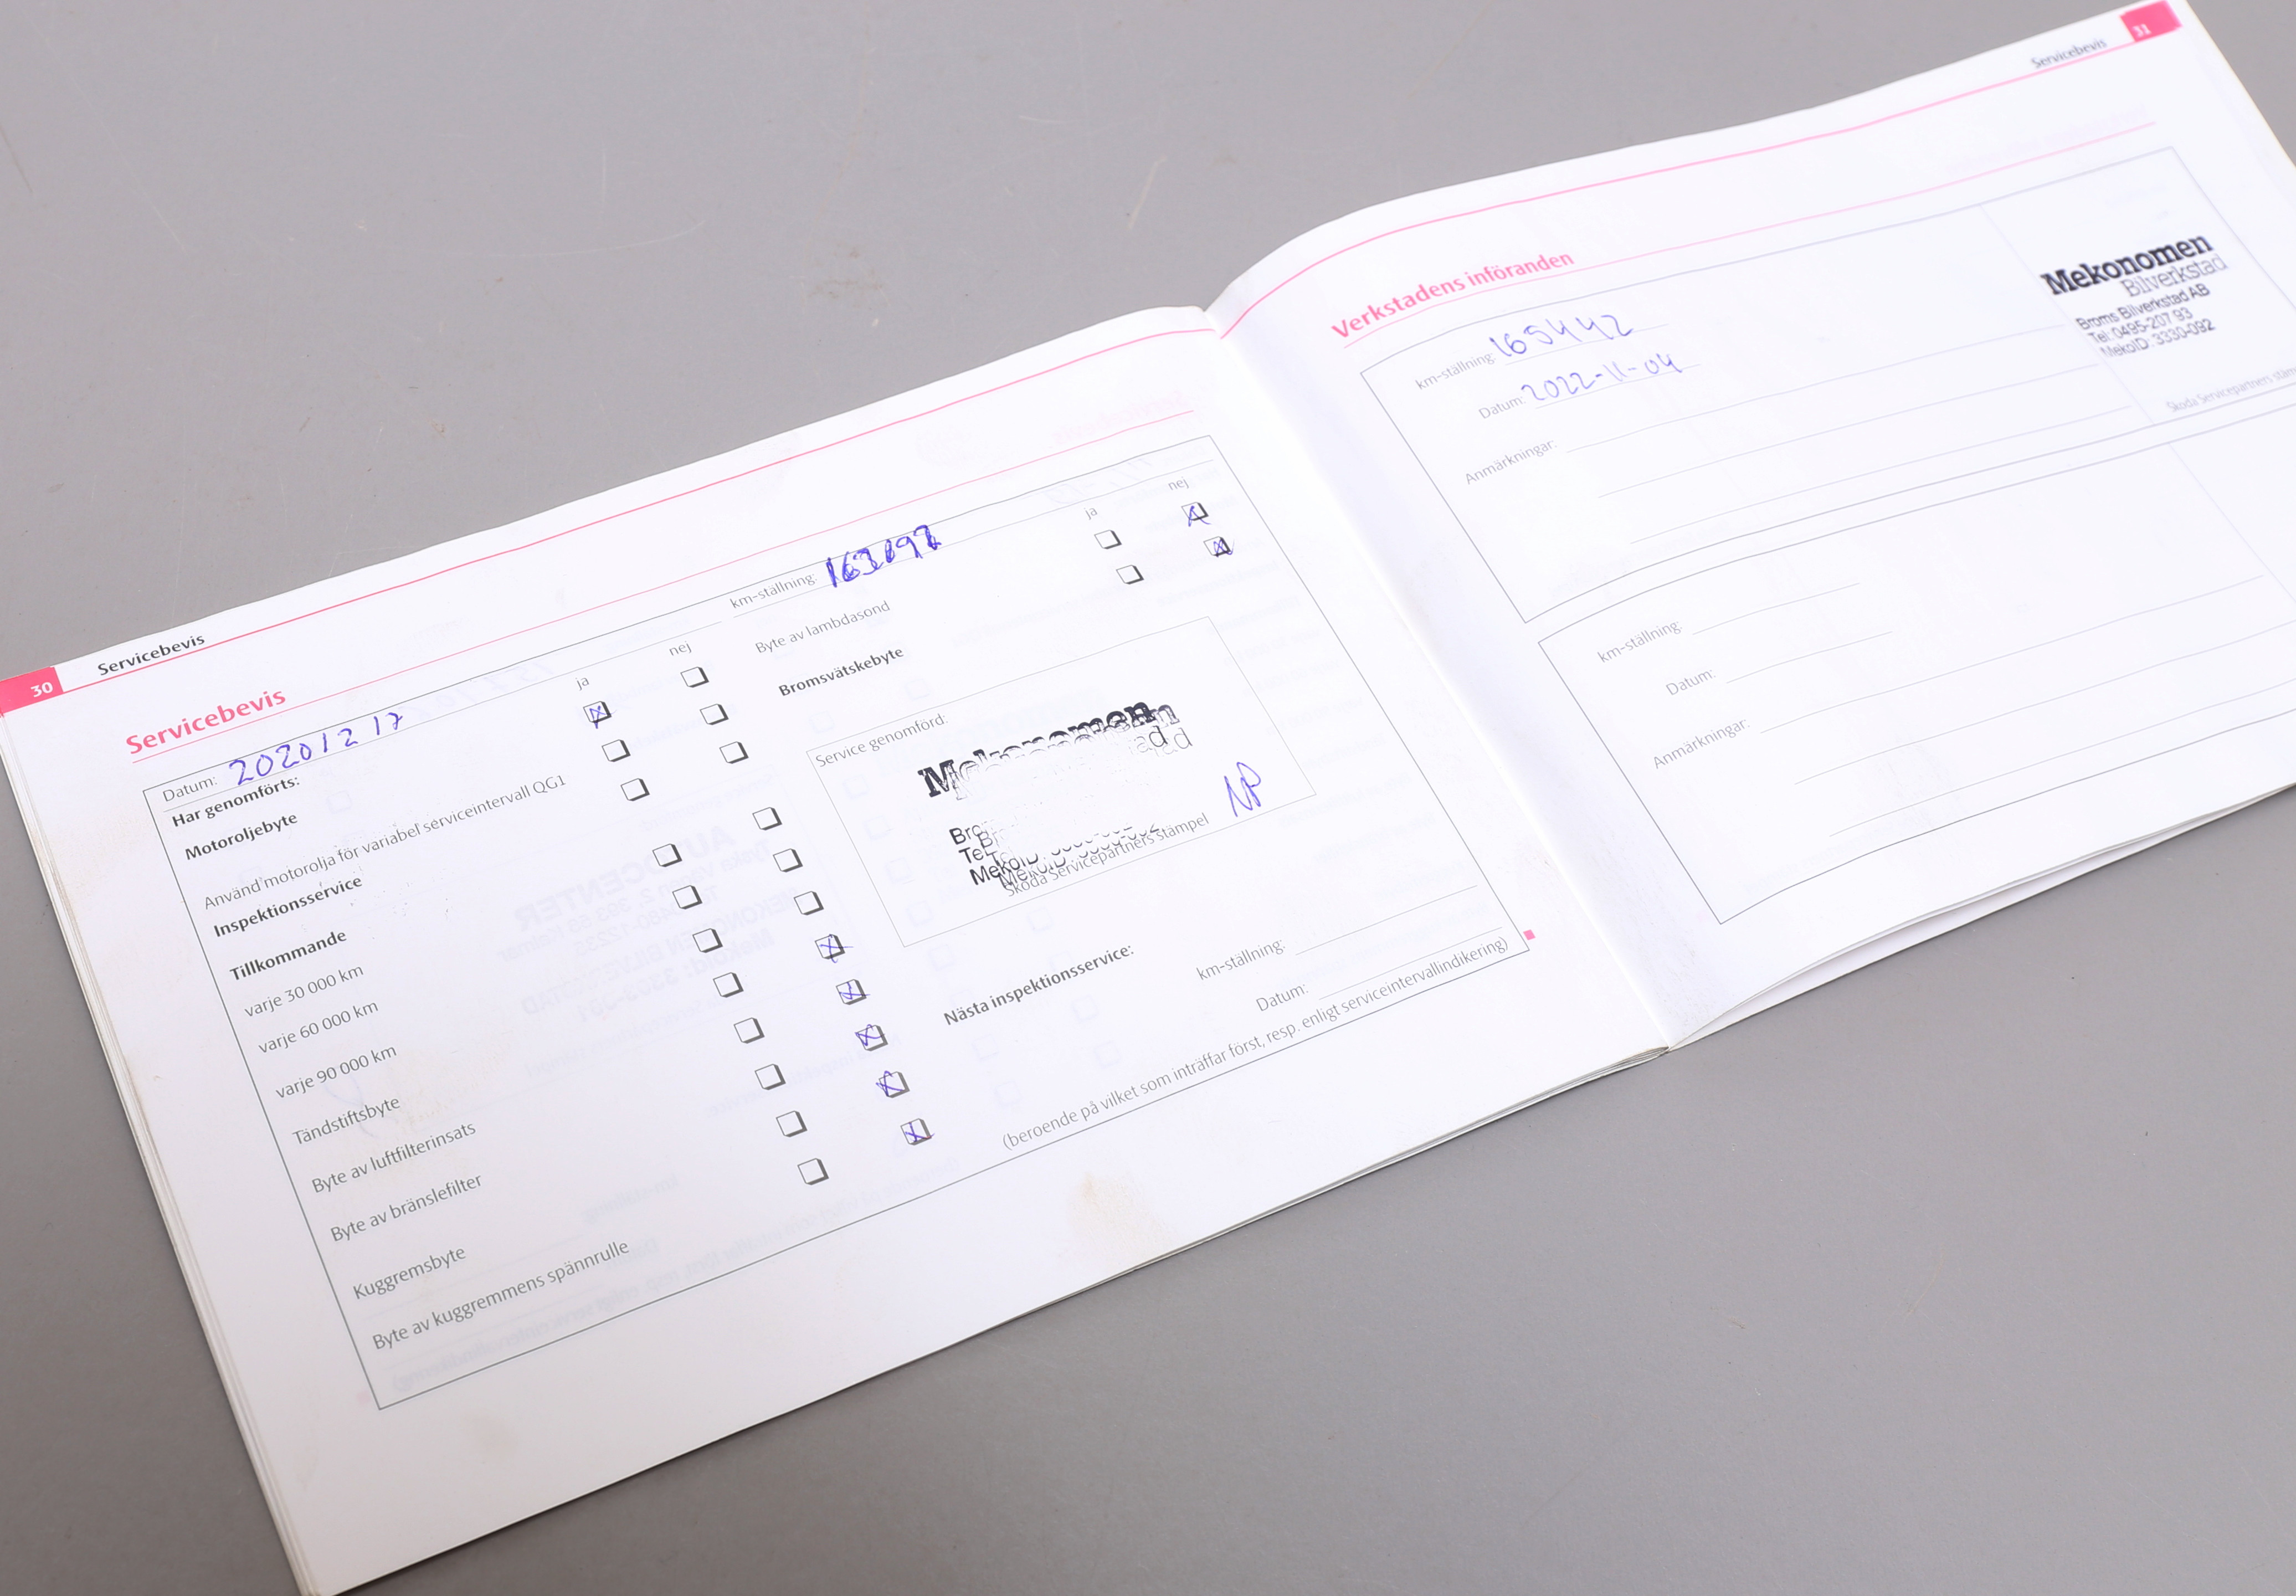 30 Servicebevis
Servicebevis
Datum: 2020 12 17
km-ställning:
Har genomförts:
ja nej
Motoroljebyte
Använd motorolja för variabel serviceintervall QG1
Inspektionsservice
Tillkommande
varje 30 000 km
varje 60 000 km
varje 90 000 km
Tändstiftsbyte
Byte av luftfilterinsats
Byte av bränslefilter
Kuggremsbyte
Byte av kuggremmens spännrulle
ja nej
Byte av lambdasond
Bromsvätskebyte
Service genomförd:
Mekonomen
Skoda Servicepartners stämpel
NP
Nästa inspektionsservice:
km-ställning:
Datum:
(beroende på vilket som inträffar först, resp. enligt serviceintervallindikering)
Servicebevis 31
Verkstadens införanden
km-ställning: 165442
Datum: 2022-11-04
Anmärkningar:
Mekonomen
Bilverkstad
Broms Bilverkstad AB
Tel: 0495-207 93
MekoID: 3330-092
Skoda Servicepartners
km-ställning:
Datum:
Anmärkningar: